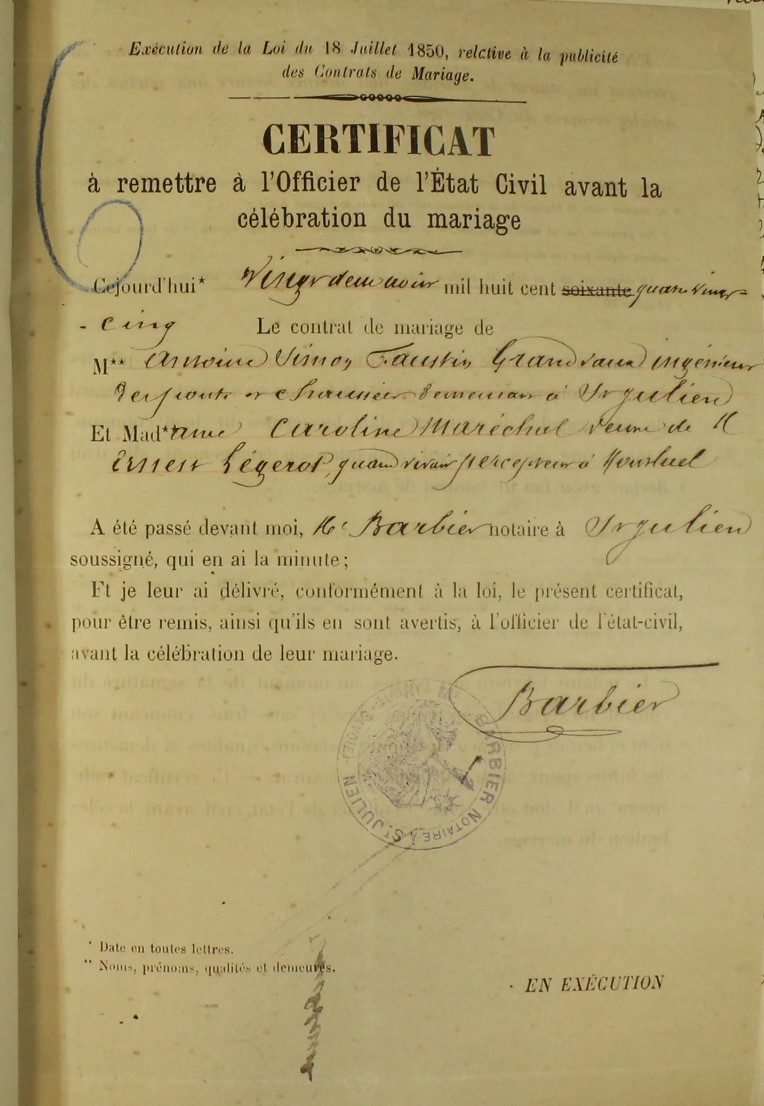 Exécution de la Loi du 18 Juillet 1850, relative à la publicité
des Contrats de Mariage.
CERTIFICAT
à remettre à l'Officier de l'État Civil avant la
célébration du mariage
Cejourd'hui* Vingt deux août mil huit cent soixante quatre vingt-
- Cinq Le contrat de mariage de
M** Antoine Simon Faustin Grand ingénieur
des ponts et chaussées demeurant à St Julien
Et Mad**ame Caroline Maréchal veuve de M
Ernest Légerot, quand vivait percepteur à Montluel
A été passé devant moi, Me Barbier notaire à St Julien
soussigné, qui en ai la minute;
Et je leur ai délivré, conformément à la loi, le présent certificat,
pour être remis, ainsi qu'ils en sont avertis, à l'officier de l'état-civil,
avant la célébration de leur mariage.
Barbier
BARBIER NOTAIRE À ST JULIEN
* Date en toutes lettres.
** Noms, prénoms, qualités et demeures.
EN EXÉCUTION